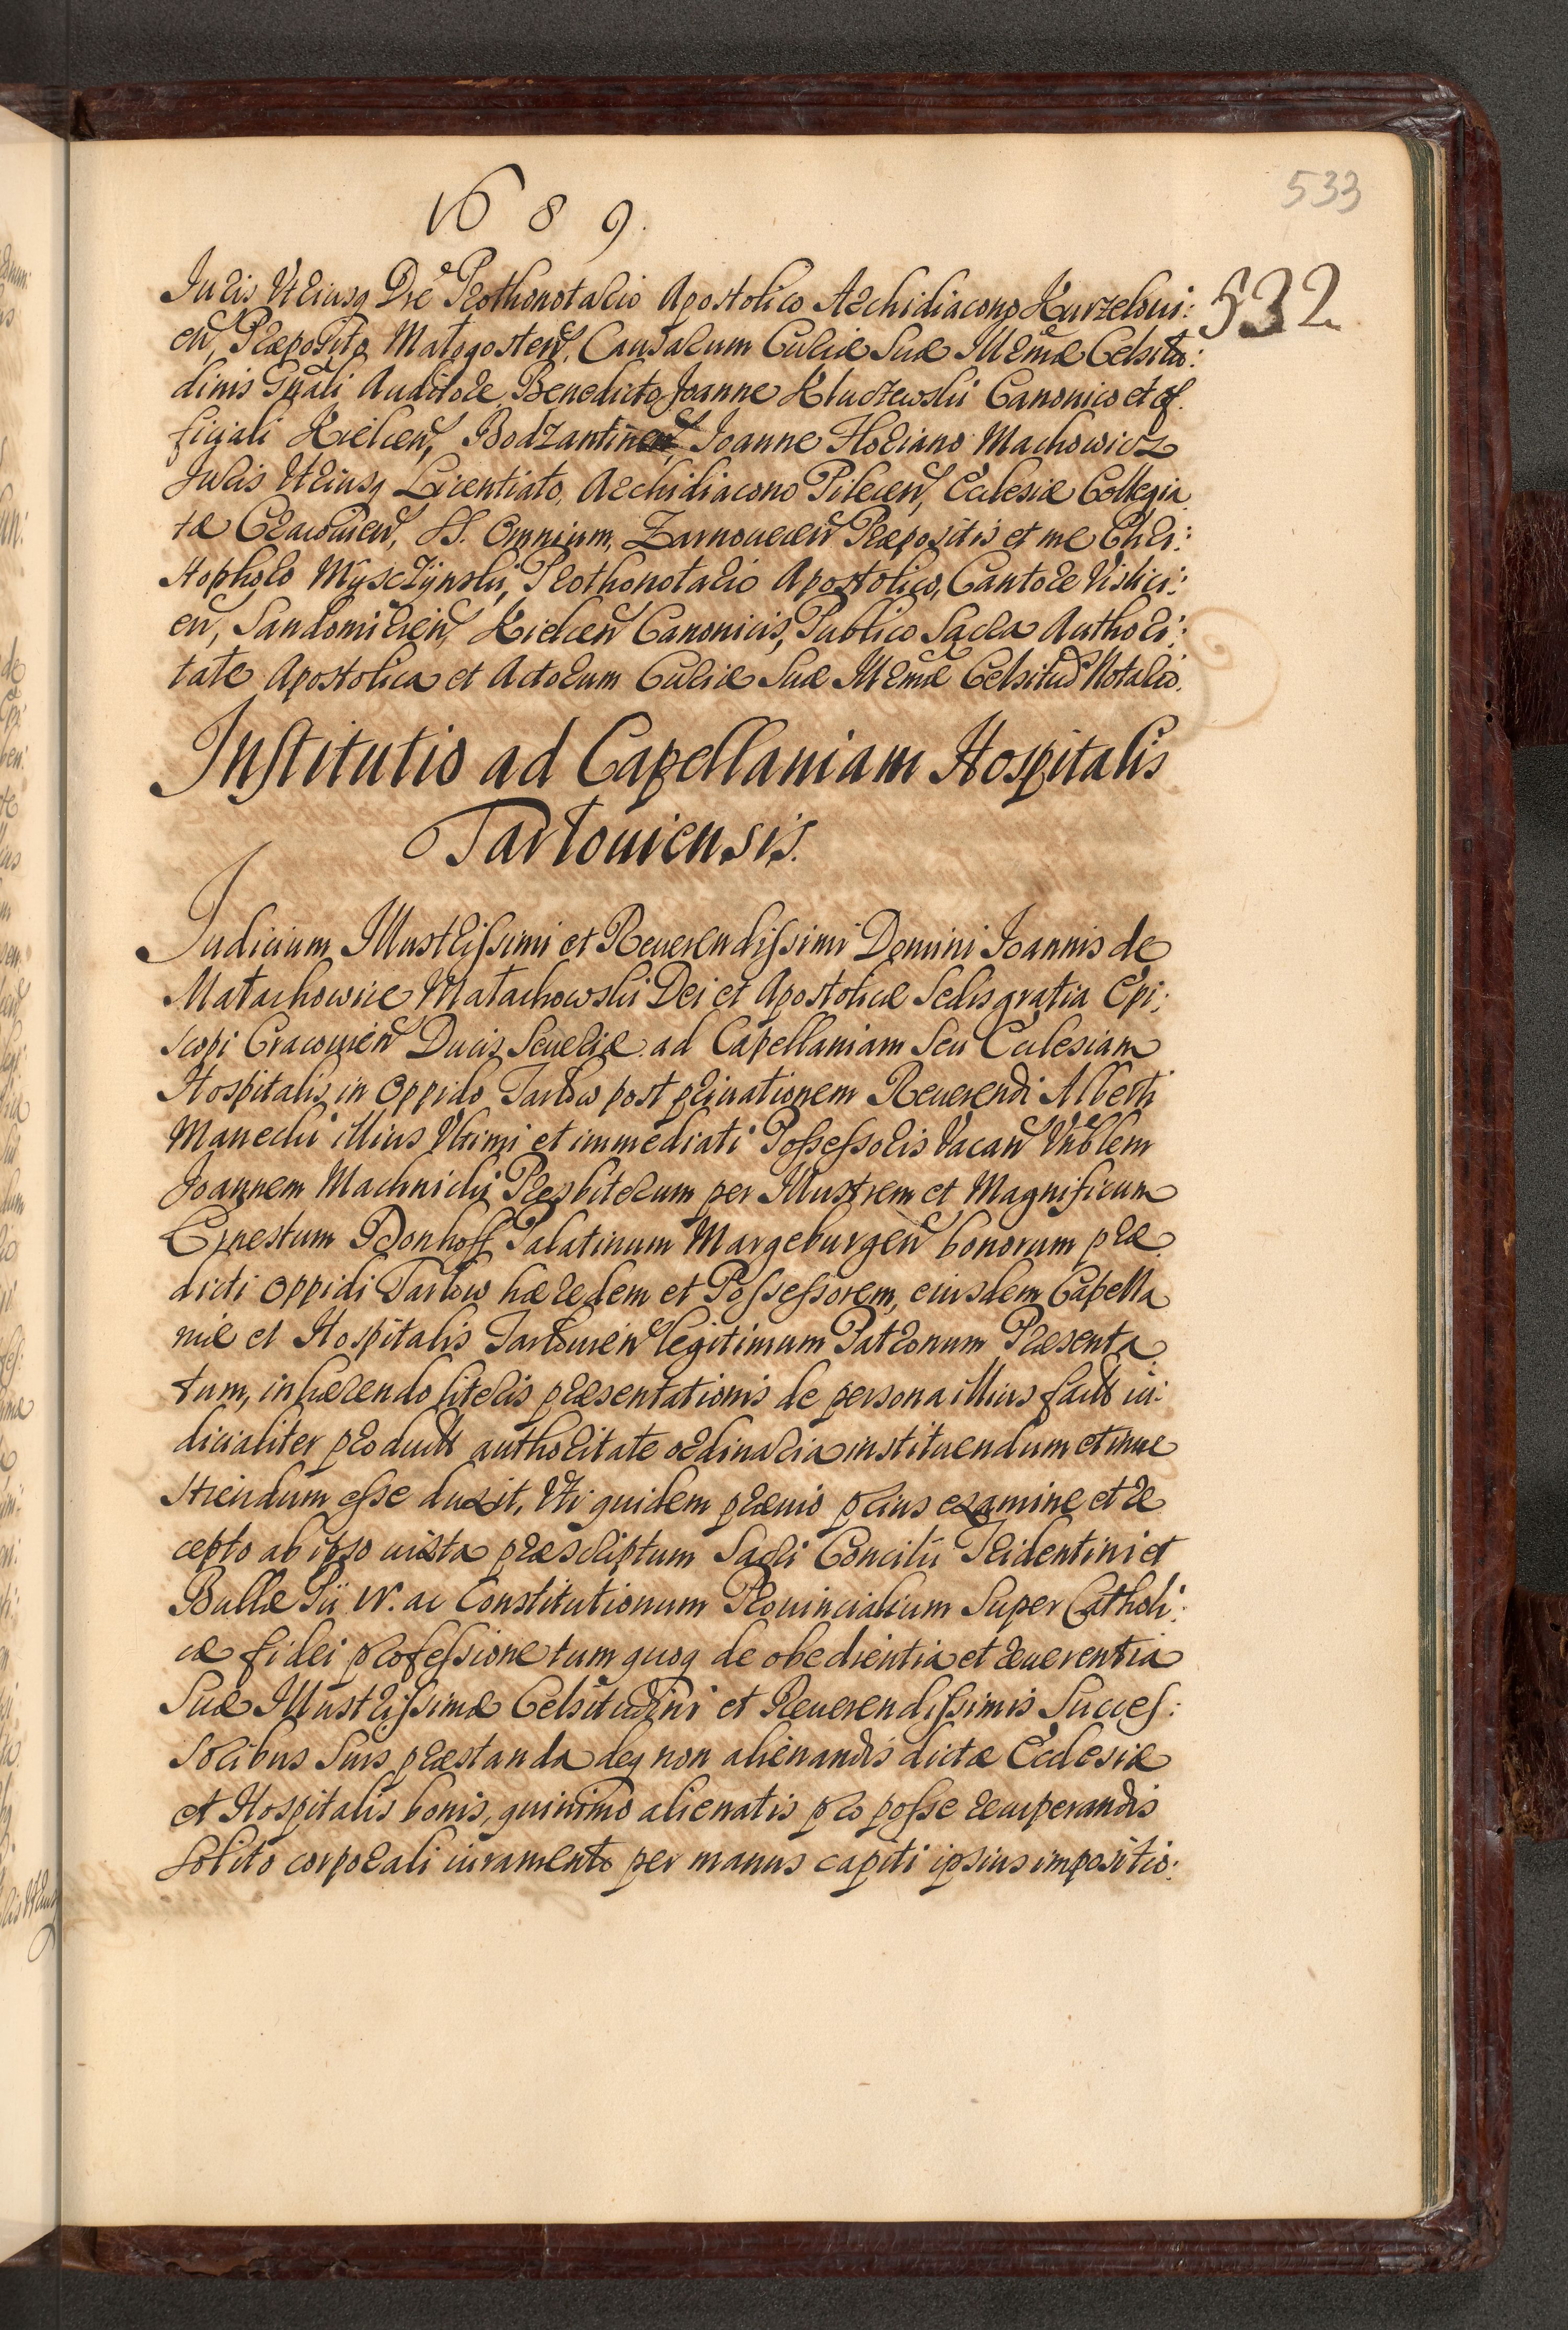 1689.
533
532
Juris Utriusq Dre Prothonotario Apostolico Archidiacono Kurzeloui:
en, Præposito Małogosten, Causarum Curiæ Suæ Illmæ Celsitu:
dinis Gnali Auditore, Benedicto Joanne Kluczewski Canonico et of.
ficiali Kielcen, Bodzantinen, Joanne Floriano Machowicz
Juris Utriusq Licentiato, Archidiacono Pilecen, Ecclesiæ Collegia
tæ Cracouien, SS. Omnium, Zarnouecen Præpositis et me Chri:
stophoro Myszczynski, Prothonotario Apostolico, Cantore Vislici:
en, Sandomirien, Kielcen Canonicis, Publico Sacra Authori:
tate Apostolica et Actorum Curiæ Suæ Illmæ Celsitud Notario.
Institutio ad Capellaniam Hospitalis
Tarłouiensis.
Judicium Illustrissimi et Reuerendissimi Domini Joannis de
Małachowice Małachowski Dei et Apostolicæ Sedis gratia Epi:
scopi Cracouien Ducis Seueriæ ad Capellaniam seu Ecclesiam
Hospitalis in Oppido Tarłow post priuationem Reuerendi Alberti
Maneciii illius Ultimi et immediati Possessoris Vacan Vnblem
Joannem Machnicki Presbiterum per Illustrem et Magnificum
Ernestum Donhoff Palatinum Margeburgen bonorum præ
dicti Oppidi Tarłow hæredem et Possessorem, eiusdem Capella
niæ et Hospitalis Tarłouien legitimum Patronum Præsenta
tum, inhærendo literis præsentationis de persona illius fact iu:
dicialiter product authoritate ordinaria instituendum et inue
stiendum esse duxit, Uti quidem præuio prius examine et re
cepto ab ipso iuxta præscriptum Sacri Concilii Tridentini et
Bullæ Pii IV. ac Constitutionum Prouincialium Super Catholi:
cæ fidei professione tum quoq de obedientia et reuerentia
Suæ Illustrissimæ Celsitudini et Reuerendissimis Succes:
soribus Suis præstanda deq non alienandis dictæ Ecclesiæ
et Hospitalis bonis, quinimo alienatis pro posse recuperandis
Solito corporali iuramento per manus capiti ipsius impositio: